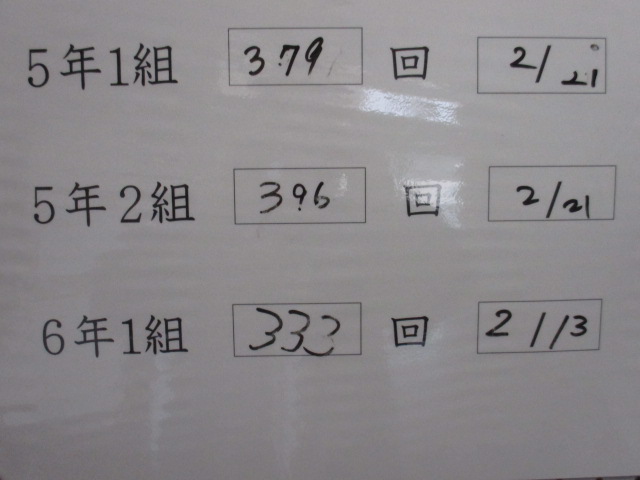 5年1組 379 回 2/21
5年2組 396 回 2/21
6年1組 333 回 2/13